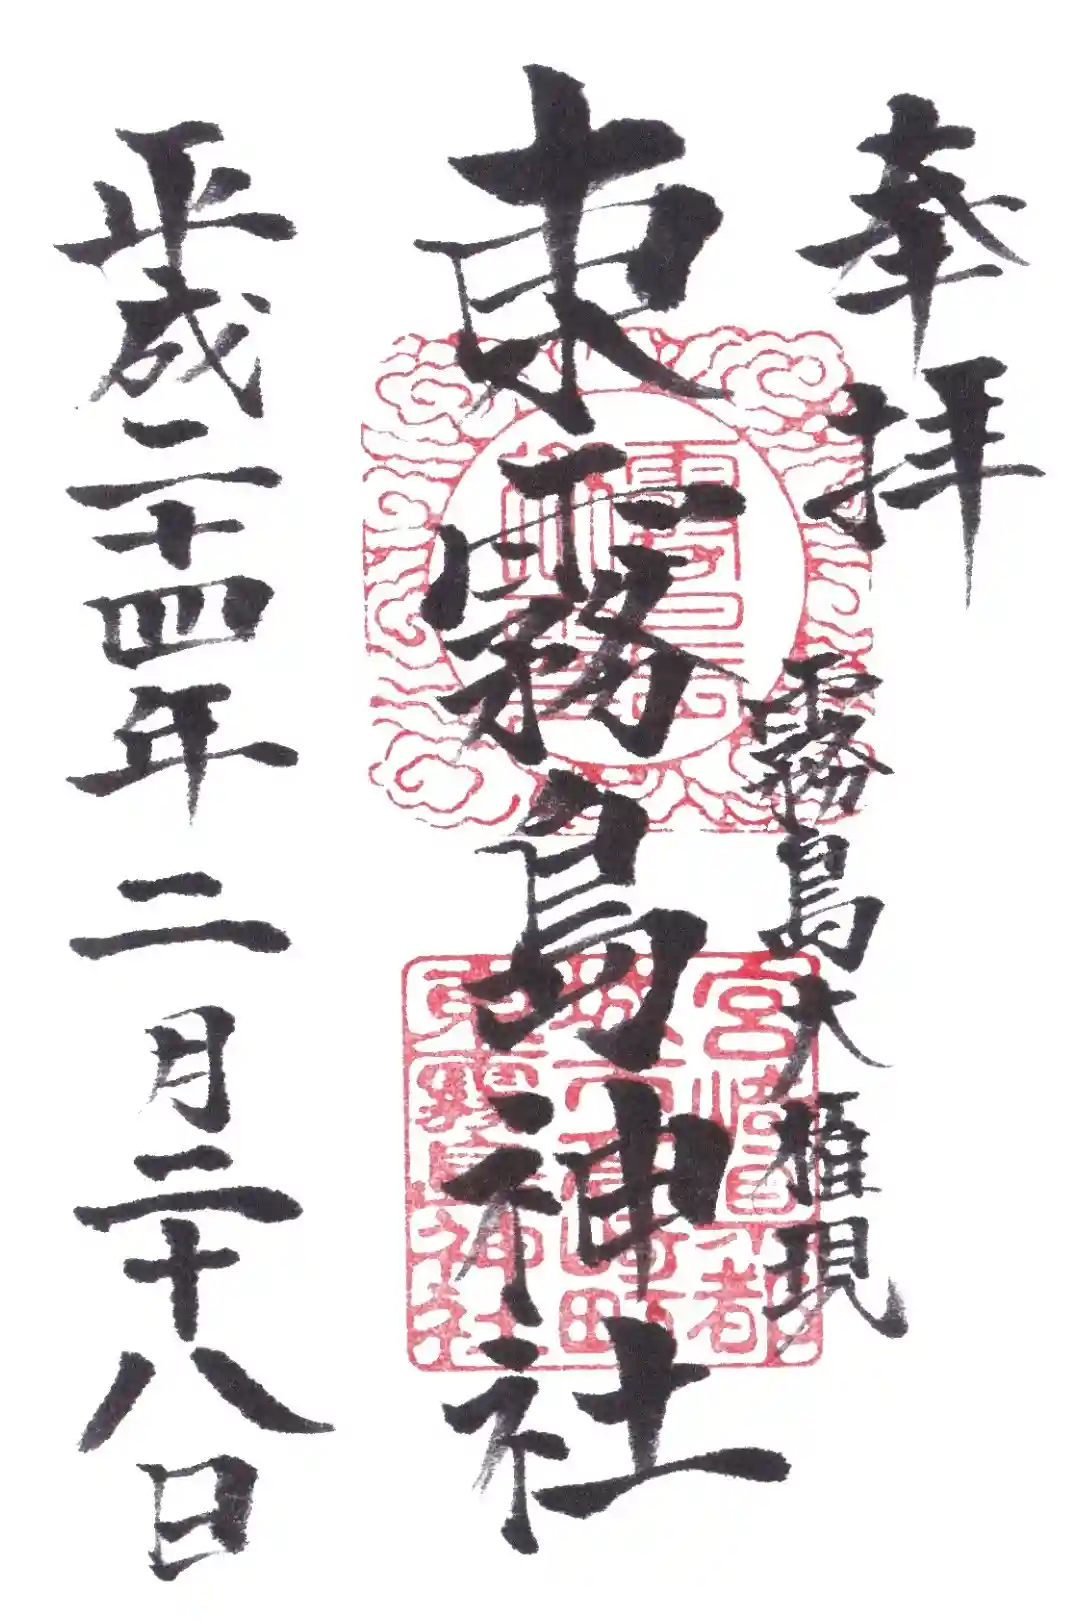 奉拝
霧島大権現
東霧島神社
平成二十四年二月二十八日
宮崎県都
東霧島神社